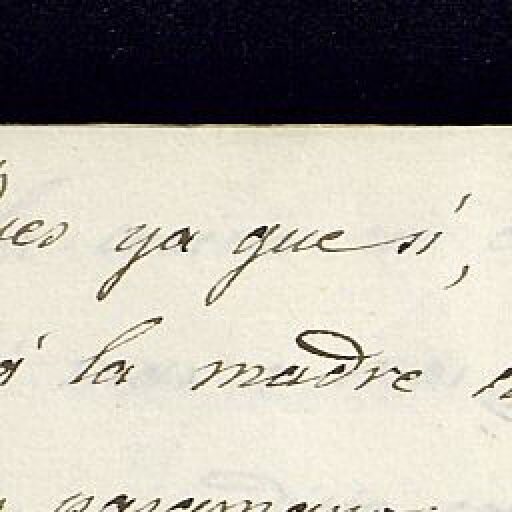 ues ya que sí,
á la madre